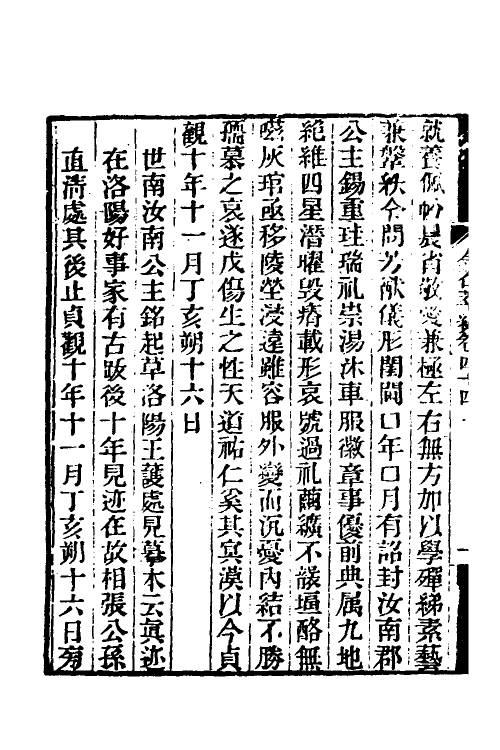 就養佩帉晨昏敬愛兼極左右無方加以學殫綈素藝
兼鞶紩令問芳猷儀形閨閫口年口月有詔封汝南郡
公主錫重珪瑞礼崇湯沐車服徽章事優前典属九地
絶維四星潛曜毀瘠載形哀號過礼繭纊不襲塭酪無
嚐灰琯亟移陵塋浸遠雖容服外變而沉憂內結不勝
孺慕之哀遂戊傷生之性天道祐仁奚其㝠漠以今貞
觀十年十一月丁亥朔十六日
世南汝南公主銘起草洛陽王護處見摹本云真迹
在洛陽好事家有古跋後十年見迹在故相張公孫
直清處其後止貞觀十年十一月丁亥朔十六日旁
卷四十四